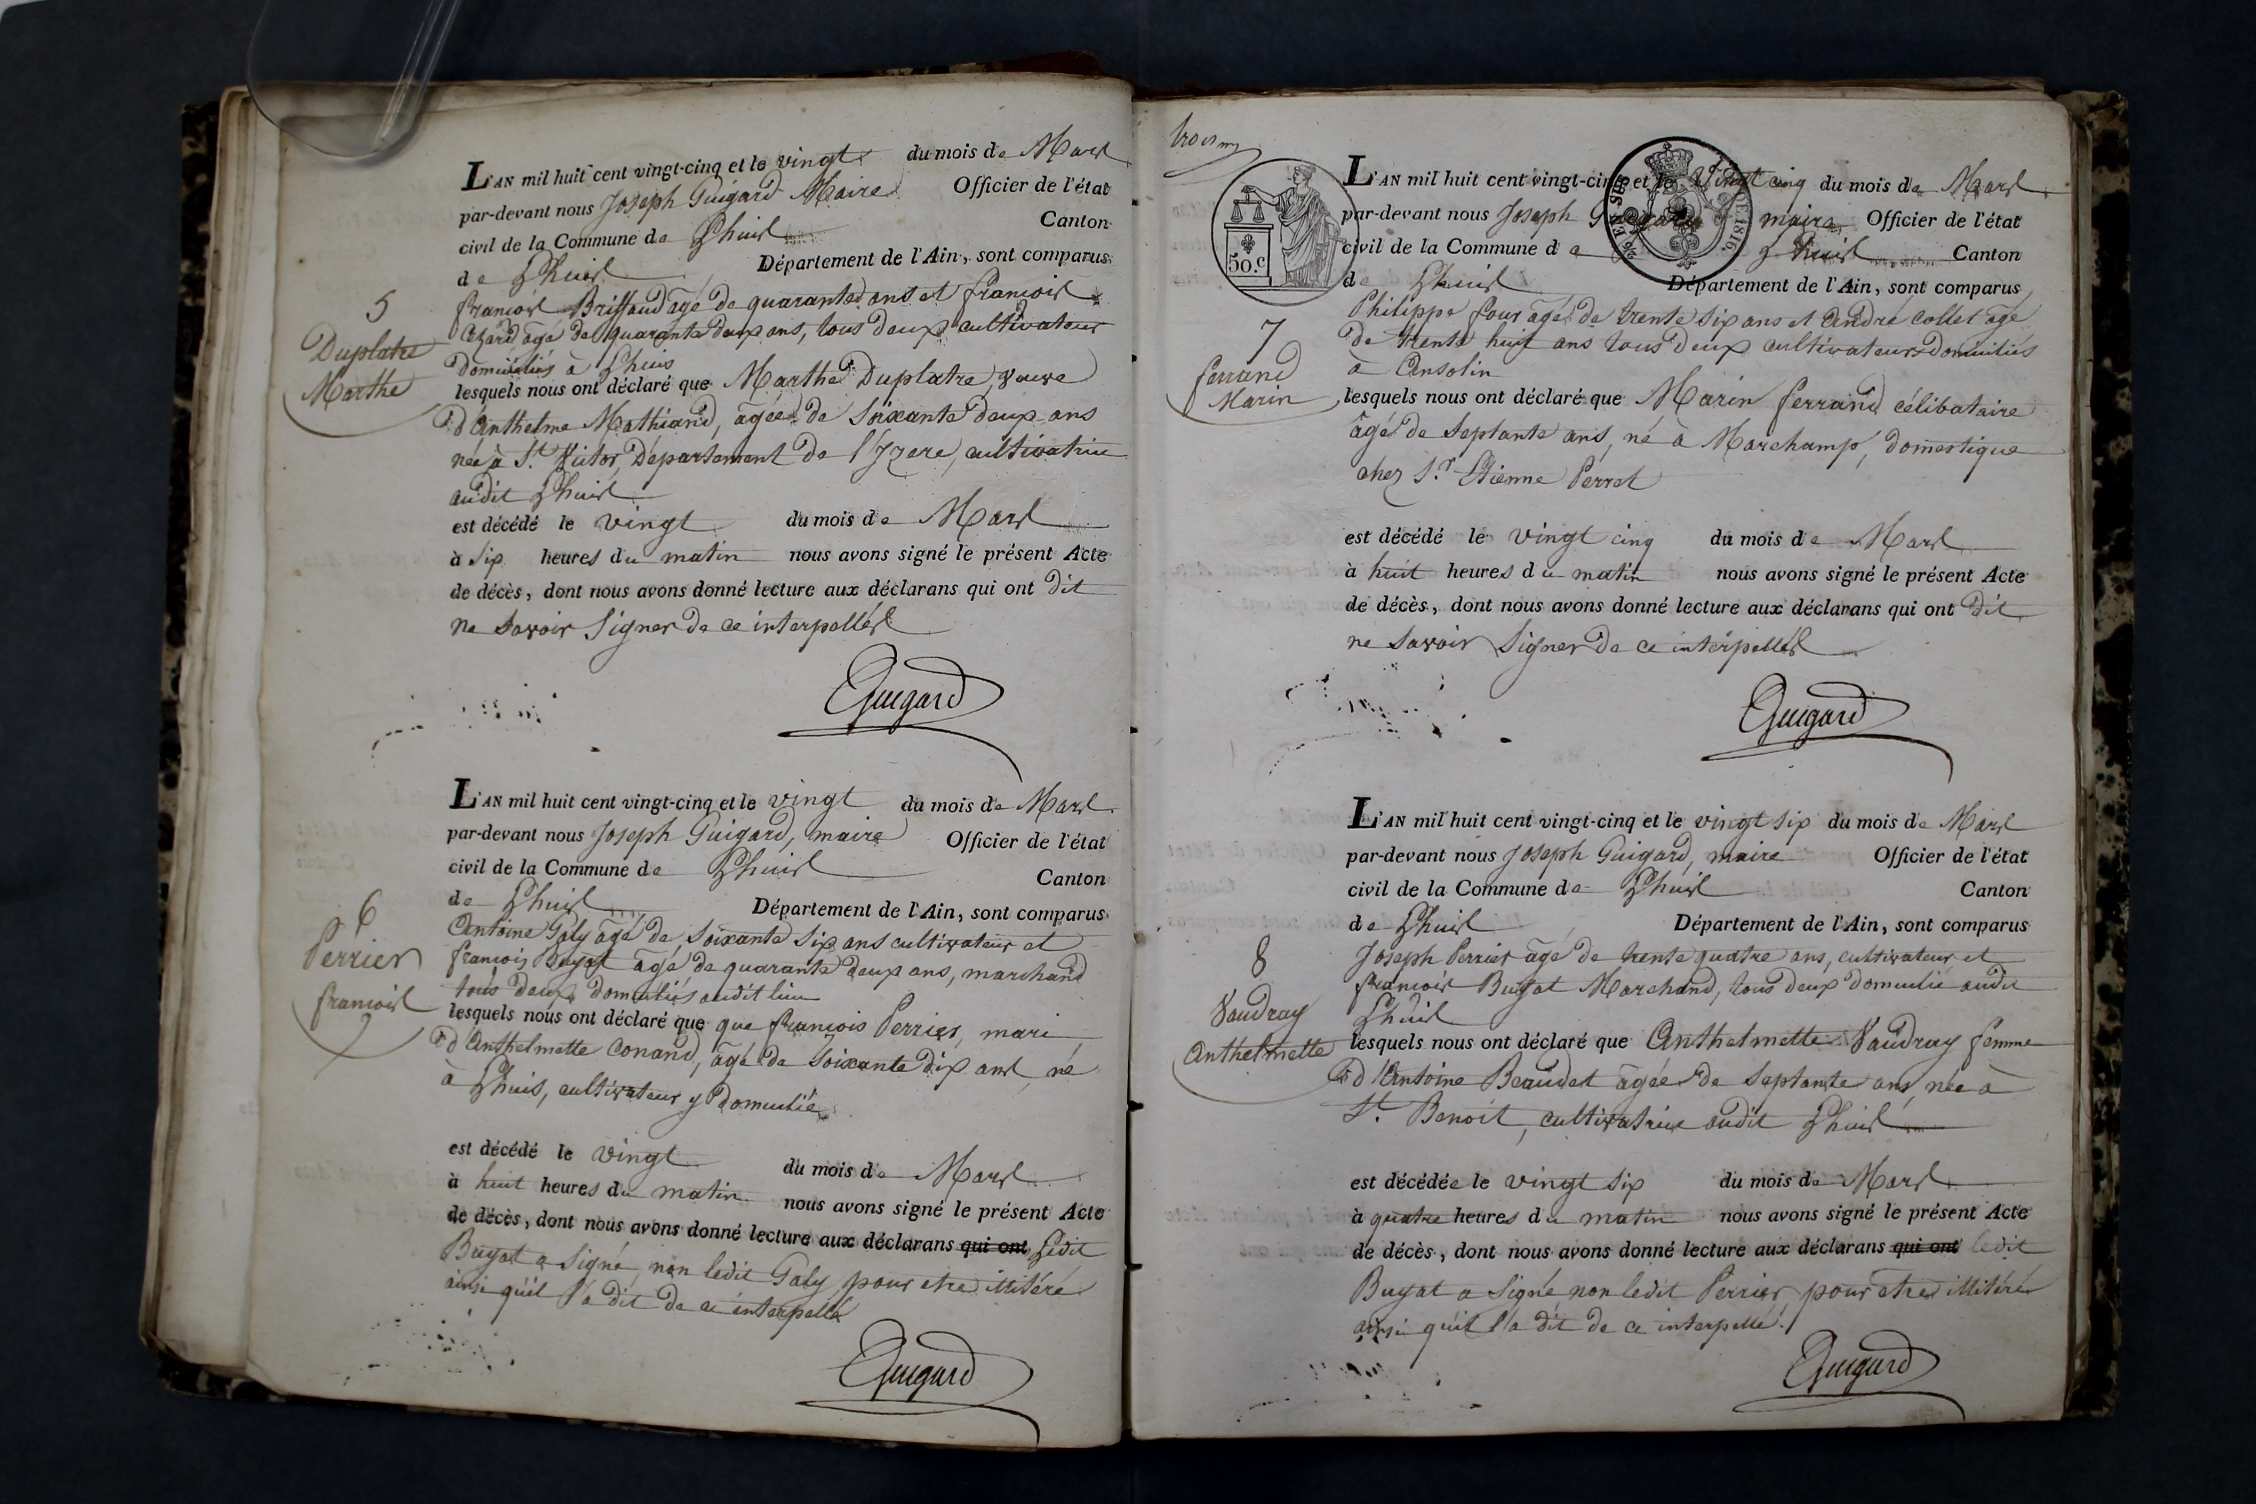 L'AN mil huit cent vingt-cinq et le vingt du mois de Mars
par-devant nous Joseph Guigard Maire Officier de l'état
civil de la Commune de Lhuis Canton
de Lhuis Département de l'Ain, sont comparus
françois Briffaud agé de quarante ans et françois
agé de quarante deux ans, tous deux cultivateurs
domiciliés à Lhuis
5
Duplatre
Marthe
lesquels nous ont déclaré que Marthe Duplatre, veuve
d'Anthelme Mathiand, agée de soixante deux ans
née à St. Victor, Département de l'Izere, cultivatrice
audit Lhuis
est décédé le vingt du mois de Mars
à six heures du matin nous avons signé le présent Acte
de décès, dont nous avons donné lecture aux déclarans qui ont dit
ne savoir signer de ce interpellés
Guigard
L'AN mil huit cent vingt-cinq et le vingt du mois de Mars
par-devant nous Joseph Guigard, maire Officier de l'état
civil de la Commune de Lhuis Canton
de Lhuis Département de l'Ain, sont comparus
Antoine Galy agé de soixante six ans cultivateur et
françois Buyat agé de quarante deux ans, marchand
tous deux domiciliés audit lieu
6
Perrier
françois
lesquels nous ont déclaré que que françois Perrier, mari
d'Anthelmette Conand, agé de soixante dix ans, né
à Lhuis, cultivateur y domicilié
est décédé le vingt du mois de Mars
à huit heures du matin nous avons signé le présent Acte
de décès, dont nous avons donné lecture aux déclarans qui ont Ledit
Buyat a signé non ledit Galy pour etre illitéré
ainsi qu'il l'a dit de ce interpellé
Guigard
50.c
DE 1816
L'AN mil huit cent vingt-cinq et le Vingt cinq du mois de Mars
par-devant nous Joseph Guigard maire Officier de l'état
civil de la Commune de Lhuis Canton
de Lhuis Département de l'Ain, sont comparus
Philippe four agé de trente six ans et André Collet agé
de trente huit ans tous deux cultivateurs domiciliés
à Ansolin
7
ferrand
Marin
lesquels nous ont déclaré que Marin ferrand célibataire
agé de septante ans, né à Marchamp, domestique
chez Sr. Etienne Perret
est décédé le vingt cinq du mois de Mars
à huit heures du matin nous avons signé le présent Acte
de décès, dont nous avons donné lecture aux déclarans qui ont dit
ne savoir signer de ce interpellés
Guigard
L'AN mil huit cent vingt-cinq et le vingt six du mois de Mars
par-devant nous Joseph Guigard, maire Officier de l'état
civil de la Commune de Lhuis Canton
de Lhuis Département de l'Ain, sont comparus
Joseph Perrier agé de trente quatre ans, cultivateur et
françois Buyat Marchand, tous deux domicilié audit
Lhuis
8
Vaudray
Anthelmette
lesquels nous ont déclaré que Anthelmette Vaudray femme
d'Antoine Beaudet agée de septante ans, née à
St. Benoit, cultivatrice audit Lhuis
est décédée le vingt six du mois de Mars
à quatre heures du matin nous avons signé le présent Acte
de décès, dont nous avons donné lecture aux déclarans qui ont ledit
Buyat a signé non ledit Perrier pour etre illitéré
ainsi qu'il l'a dit de ce interpellé
Guigard